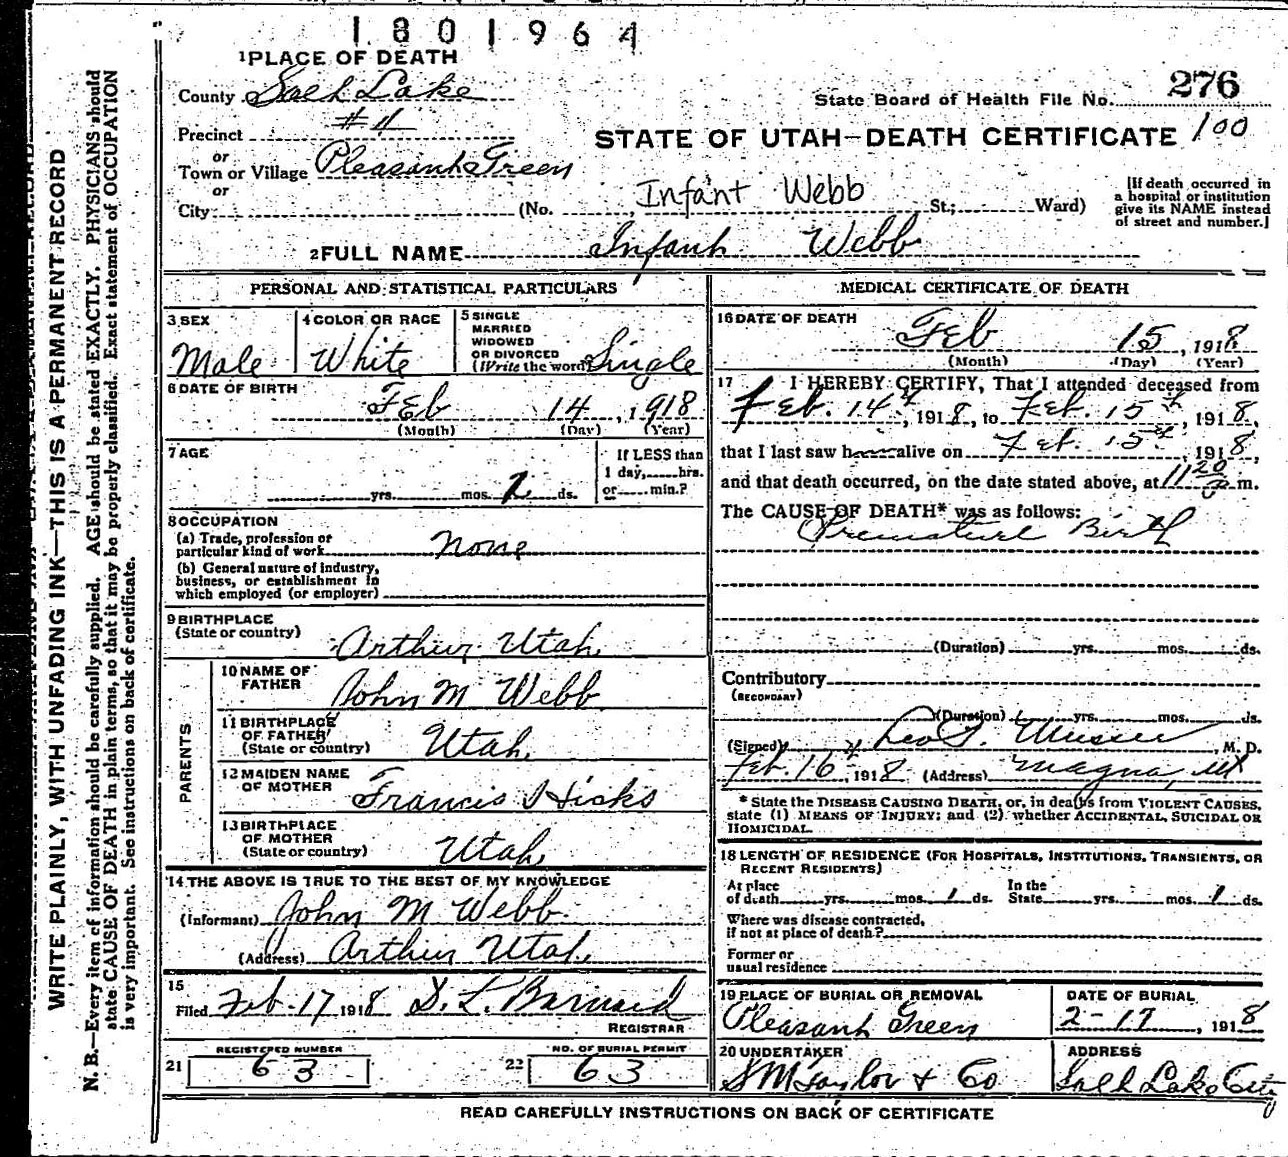 1801964
1 PLACE OF DEATH
County Salt Lake
276
State Board of Health File No.
Precinct #11
STATE OF UTAH—DEATH CERTIFICATE 100
or
Town or Village Pleasant Green
or
Infant Webb
City (No. St.; Ward)
[If death occurred in
a hospital or institution
give its NAME instead
of street and number.]
2 FULL NAME Infant Webb
PERSONAL AND STATISTICAL PARTICULARS
3 SEX
Male
4 COLOR OR RACE
White
5 SINGLE
MARRIED
WIDOWED
OR DIVORCED
(Write the word) Single
6 DATE OF BIRTH
Feb 14, 1918
(Month) (Day) (Year)
7 AGE
yrs. mos. ds.
If LESS than
1 day, hrs.
or min.?
8 OCCUPATION
(a) Trade, profession or
particular kind of work none
(b) General nature of industry,
business, or establishment in
which employed (or employer)
9 BIRTHPLACE
(State or country) Arthur, Utah,
PARENTS
10 NAME OF
FATHER John M Webb
11 BIRTHPLACE
OF FATHER
(State or country) Utah,
12 MAIDEN NAME
OF MOTHER Francis Hicks
13 BIRTHPLACE
OF MOTHER
(State or country) Utah,
14 THE ABOVE IS TRUE TO THE BEST OF MY KNOWLEDGE
(Informant) John M Webb
(Address) Arthur Utah,
15
Filed Feb-17 1918 D. L. Barnard
REGISTRAR
REGISTERED NUMBER
21 63
NO. OF BURIAL PERMIT
22 63
MEDICAL CERTIFICATE OF DEATH
16 DATE OF DEATH
Feb 15, 1918
(Month) (Day) (Year)
17 I HEREBY CERTIFY, That I attended deceased from
Feb. 14th, 1918, to Feb. 15th, 1918,
that I last saw h alive on Feb. 15th, 1918,
and that death occurred, on the date stated above, at 11 20 m.
The CAUSE OF DEATH* was as follows:
Premature Birth
(Duration) yrs. mos. ds.
Contributory
(SECONDARY)
(Duration) yrs. mos. ds.
(Signed) Leo F. Musser, M. D.
Feb. 16th, 1918 (Address) Magna, Ut
* State the DISEASE CAUSING DEATH, or, in deaths from VIOLENT CAUSES,
state (1) MEANS OF INJURY; and (2) whether ACCIDENTAL, SUICIDAL OR
HOMICIDAL.
18 LENGTH OF RESIDENCE (FOR HOSPITALS, INSTITUTIONS, TRANSIENTS, OR
RECENT RESIDENTS)
At place
of death yrs. mos. 1 ds.
In the
State yrs. mos. 1 ds.
Where was disease contracted,
if not at place of death?
Former or
usual residence
19 PLACE OF BURIAL OR REMOVAL
Pleasant Green
DATE OF BURIAL
2-17, 1918
20 UNDERTAKER
S M Taylor & Co
ADDRESS
Salt Lake City
READ CAREFULLY INSTRUCTIONS ON BACK OF CERTIFICATE
WRITE PLAINLY, WITH UNFADING INK—THIS IS A PERMANENT RECORD
N. B.—Every item of information should be carefully supplied. AGE should be stated EXACTLY. PHYSICIANS should
state CAUSE OF DEATH in plain terms, so that it may be properly classified. Exact statement of OCCUPATION
is very important. See instructions on back of certificate.